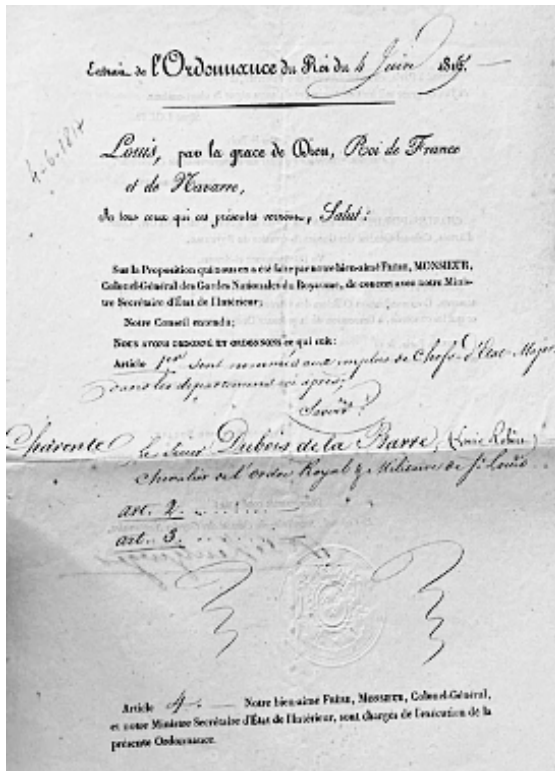 Extrait de l'Ordonnance du Roi du 4 Juin 181
4-6-181
Louis, par la grace de Dieu, Roi de France
et de Navarre,
A tous ceux qui ces présentes verront, Salut:
Sur la Proposition qui nous en a été faite par notre bien-aimé Frère, MONSIEUR,
Colonel-Général des Gardes Nationales du Royaume, de concert avec notre Minis-
tre Secrétaire d'État de l'Intérieur;
Notre Conseil entendu;
Nous avons ordonné et ordonnons ce qui suit:
Article 1er Sont nommés aux emplois de Chefs d'Etat-Major
dans les départemens ci après;
Savoir:
Charente Le Sieur Dubois de la Barre,
Chevalier de l'ordre Royal & Militaire de St Louis
art. 2. . . . . . . .
art. 3. . . . . . . .
Article 4. Notre bien-aimé Frère, Monsieur, Colonel-Général,
et notre Ministre Secrétaire d'État de l'Intérieur, sont chargés de l'exécution de la
présente Ordonnance.